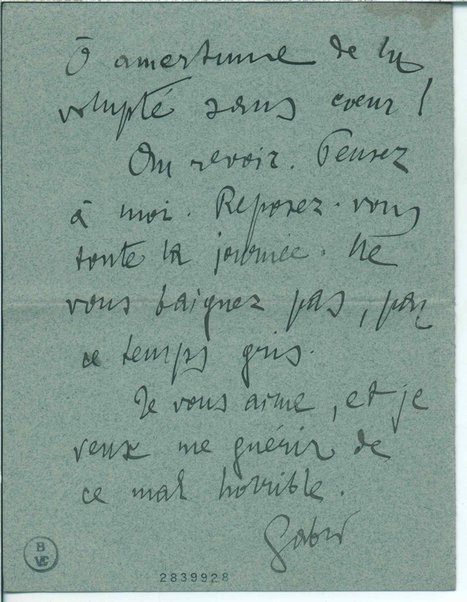 Ô amertume de la
volupté sans cœur!
Au revoir. Pensez
à moi. Reposez-vous
toute la journée. Ne
vous baignez pas, par
ce temps gris.
Je vous aime, et je
veux me guérir de
ce mal horrible.
Gabri
B
VE
2839928